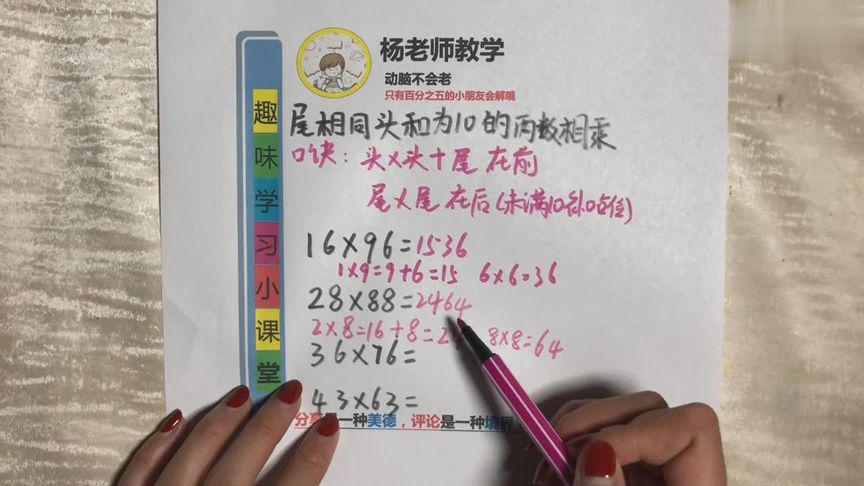 杨老师教学
动脑不会老
只有百分之五的小朋友会解哦
趣味学习小课堂
尾相同头和为10的两数相乘
口诀：头×头+尾 在前
尾×尾 在后(未满10补0占位)
16×96=1536
1×9=9+6=15 6×6=36
28×88=2464
2×8=16+8=2 8×8=64
36×76=
43×63=
分享是一种美德，评论是一种境界